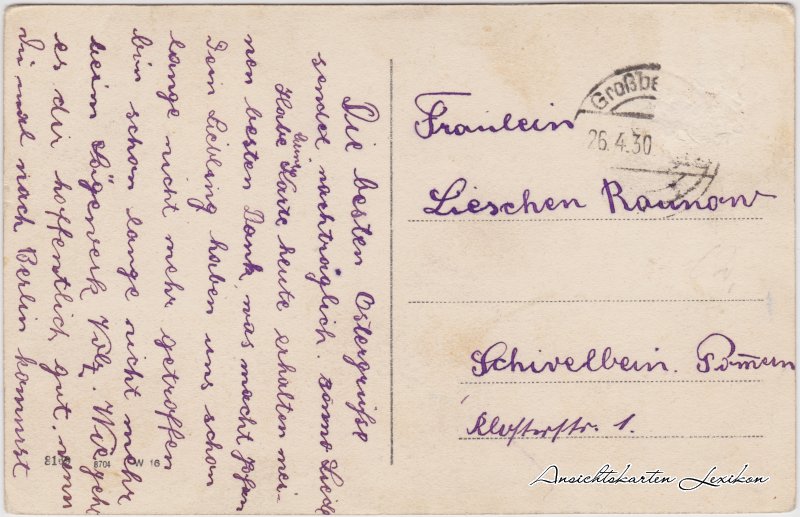 Die besten Ostergrüße
sendet nachträglich.
Habe deine Karte heute erhalten mei-
nen besten Dank, was macht
Dein Liebling haben uns schon
lange nicht mehr getroffen
bin schon lange nicht mehr
beim Sägewerk Volz. Wie geht
es dir hoffentlich gut. wann
du mal nach Berlin kommst
Großbe
26.4.30
Fräulein
Lieschen Raunow
Schivelbein. Pom̅ern
Klosterstr. 1.
8704
W 16
Ansichtskarten Lexikon